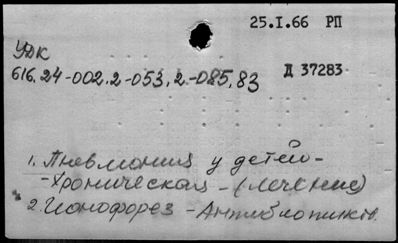 25.I.66 РП
УДК
616.24-002.2-053.2-085.83
Д 37283
1. Пневмония у детей -
- хроническая - (лечение)
2. Ионофорез - Антибиотиков.